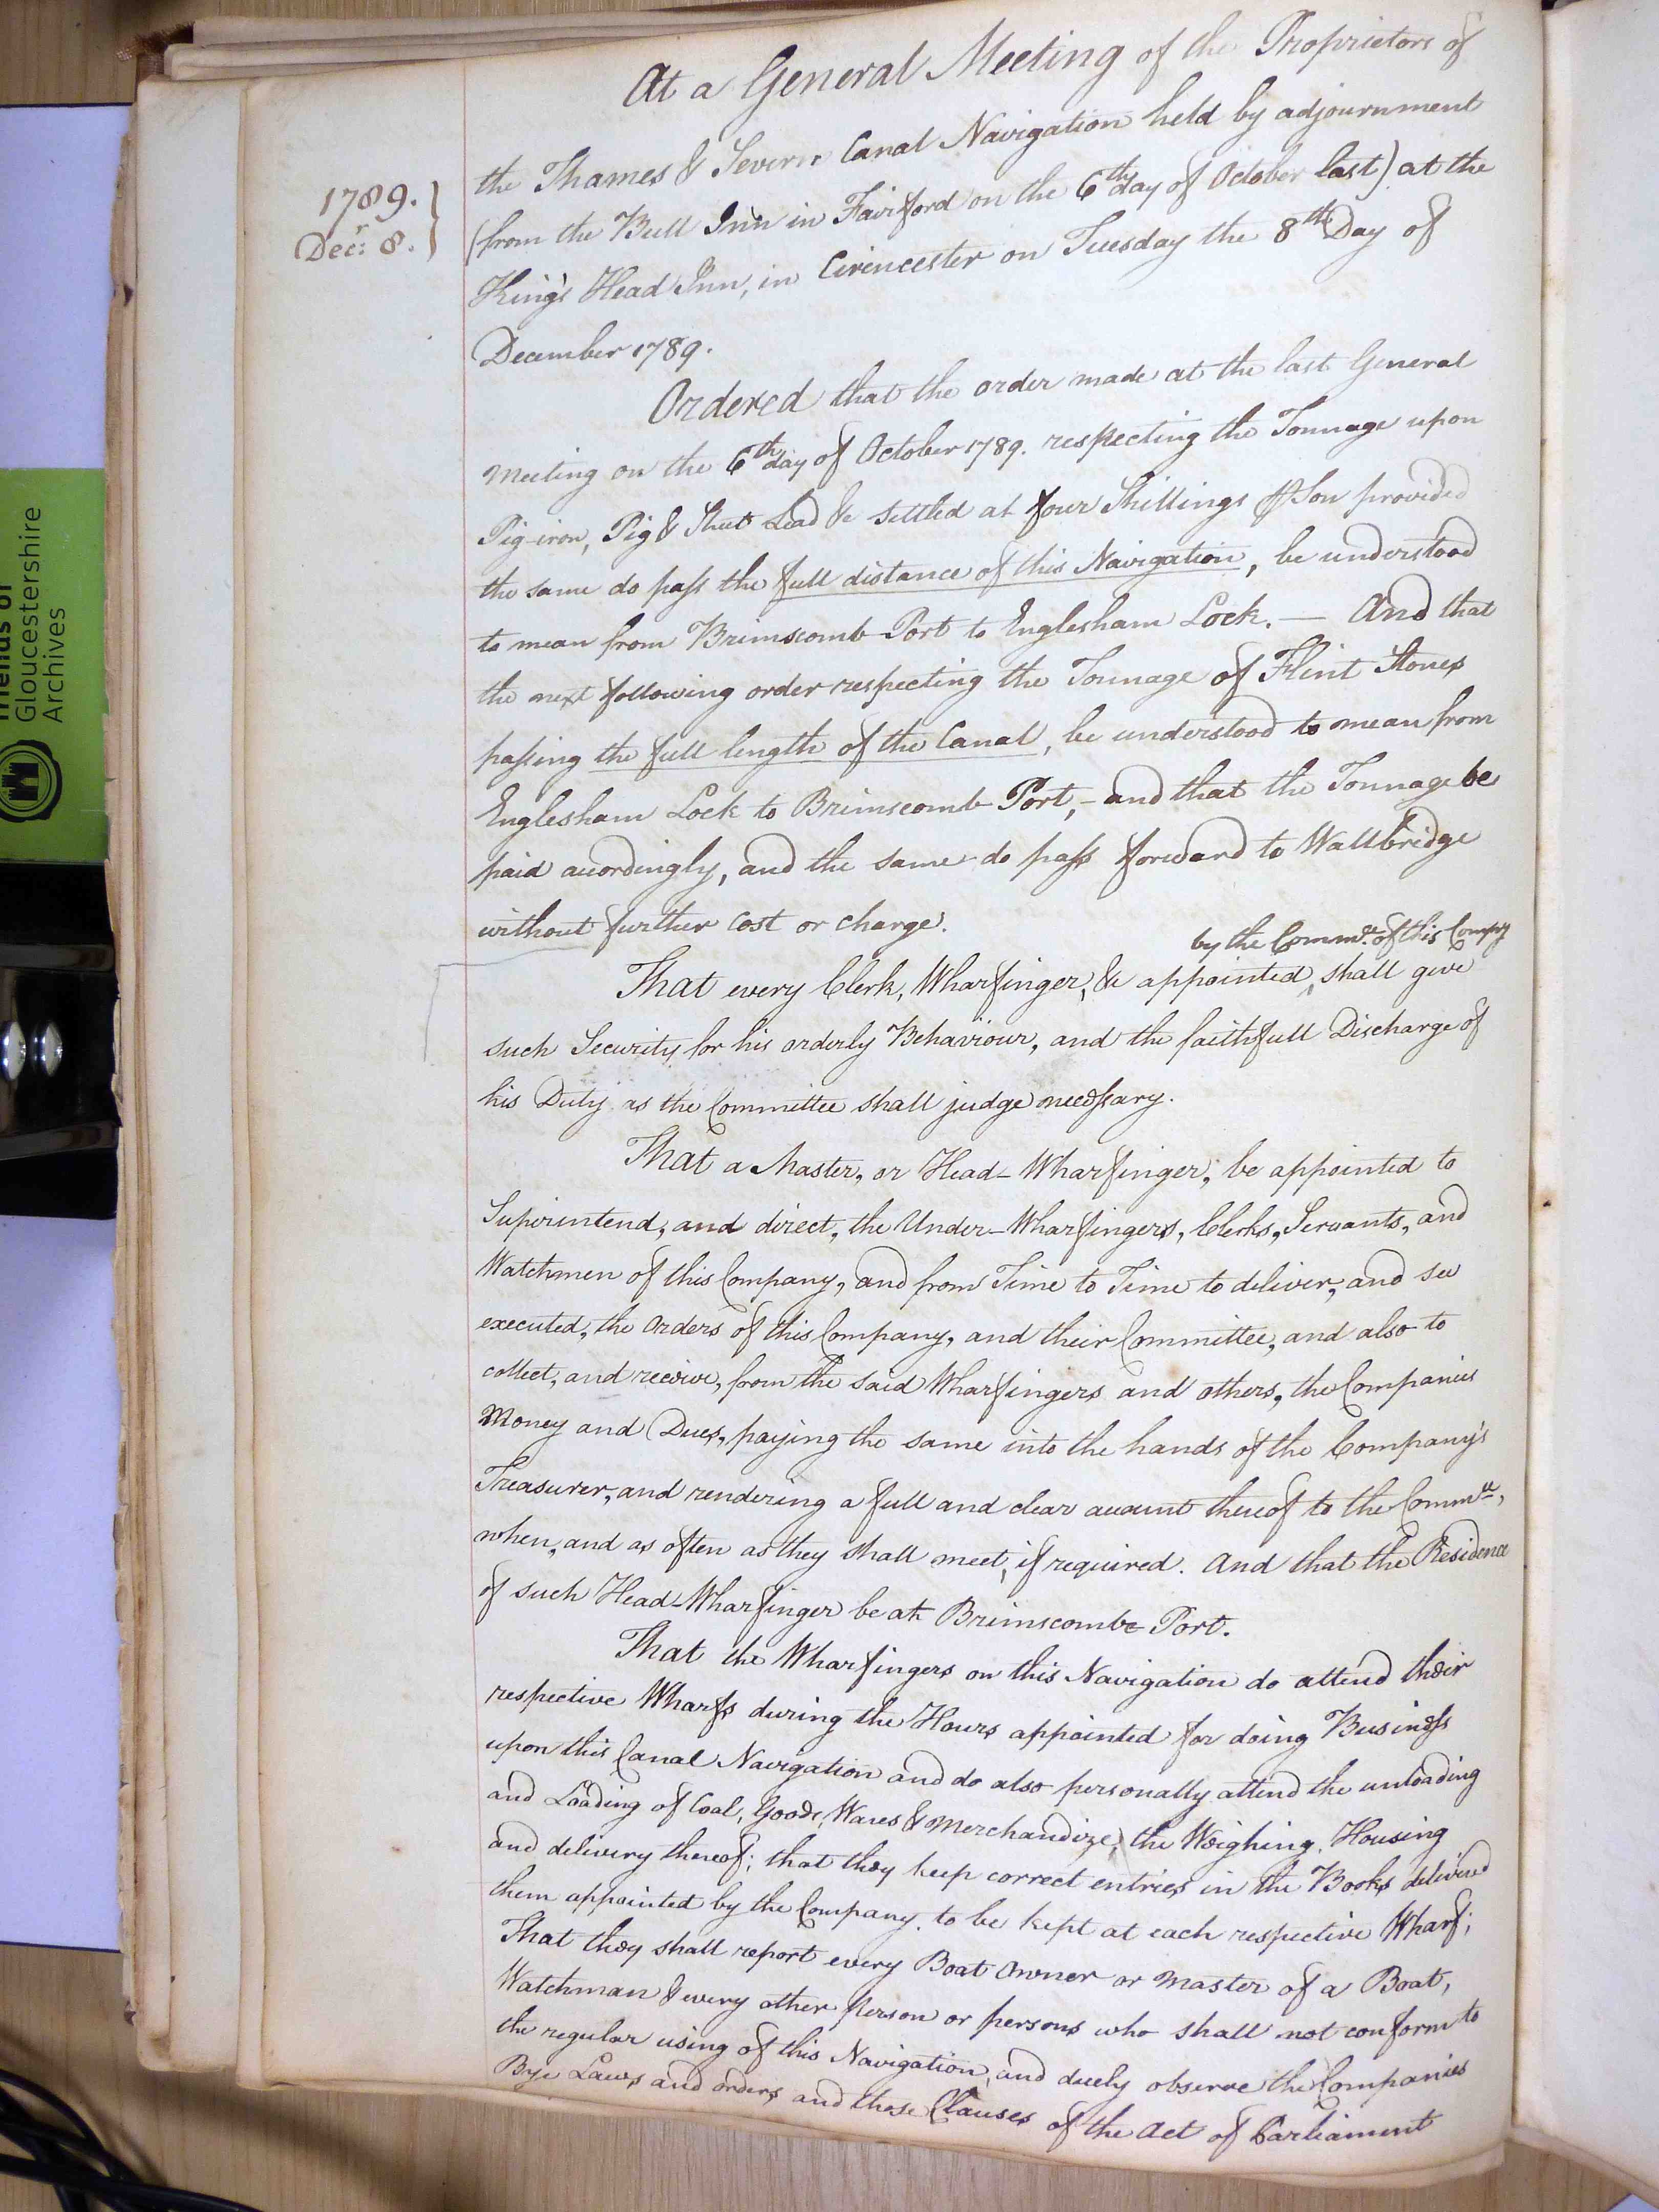 At a General Meeting of the Proprietors of
the Thames & Severn Canal Navigation held by adjournment
1789.
Decr: 8.
(from the Bull Inn in Fairford on the 6th day of October last) at the
King's Head Inn, in Cirencester on Tuesday the 8th Day of
December 1789.
Ordered that the order made at the last General
Meeting on the 6th day of October 1789. respecting the Tonnage upon
Pig-iron, Pig & Sheet Lead &c settled at four Shillings ⅌ Ton provided
the same do pass the full distance of this Navigation, be understood
to mean from Brimscomb Port to Englesham Lock. — And that
the next following order respecting the Tonnage of Flint Stones
passing the full length of the Canal, be understood to mean from
Englesham Lock to Brimscomb Port, - and that the Tonnage be
paid accordingly, and the same do pass forward to Wallbridge
without further cost or charge.
by the Commee. of this Compy
That every Clerk, Wharfinger, &c appointed, shall give
such Security for his orderly Behaviour, and the faithfull Discharge of
his Duty as the Committee shall judge necessary.
That a Master, or Head-Wharfinger, be appointed to
Superintend, and direct, the Under-Wharfingers, Clerks, Servants, and
Watchmen of this Company, and from Time to Time to deliver, and see
executed, the Orders of this Company, and their Committee, and also to
collect, and receive, from the said Wharfingers and others, the Companies
Money and Dues, paying the same into the hands of the Company's
Treasurer, and rendering a full and clear account thereof to the Commee,
when, and as often as they shall meet, if required. And that the Residence
of such Head-Wharfinger be at Brimscombe Port.
That the Wharfingers on this Navigation do attend their
respective Wharfs during the Hours appointed for doing Business
upon this Canal Navigation and do also personally attend the unloading
and Loading of Coal, Goods, Wares & Merchandize, the Weighing, Housing
and delivery thereof; that they keep correct entries in the Books delivered
them appointed by the Company, to be kept at each respective Wharf;
That they shall report every Boat Owner or Master of a Boat,
Watchman & every other Person or persons who shall not conform to
the regular using of this Navigation, and duely observe the Companies
Bye Laws and orders and those Clauses of the Act of Parliament
Friends of
Gloucestershire
Archives